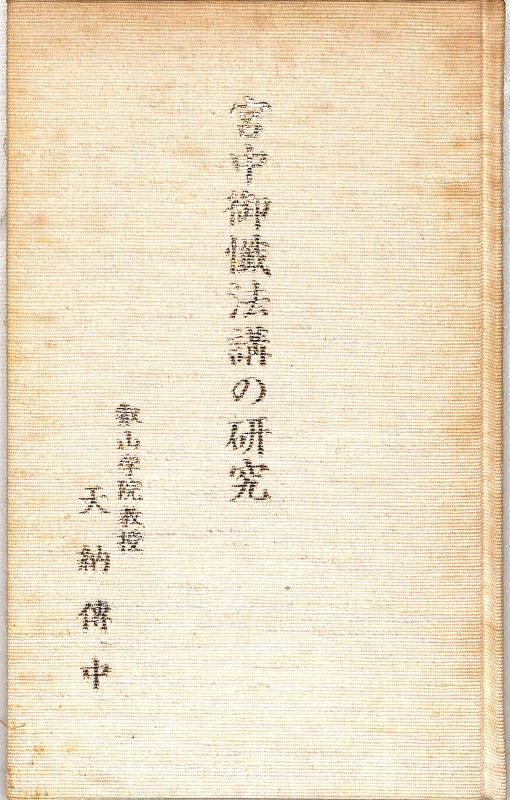 宮中御懺法講の研究
叡山学院教授
天納傳中